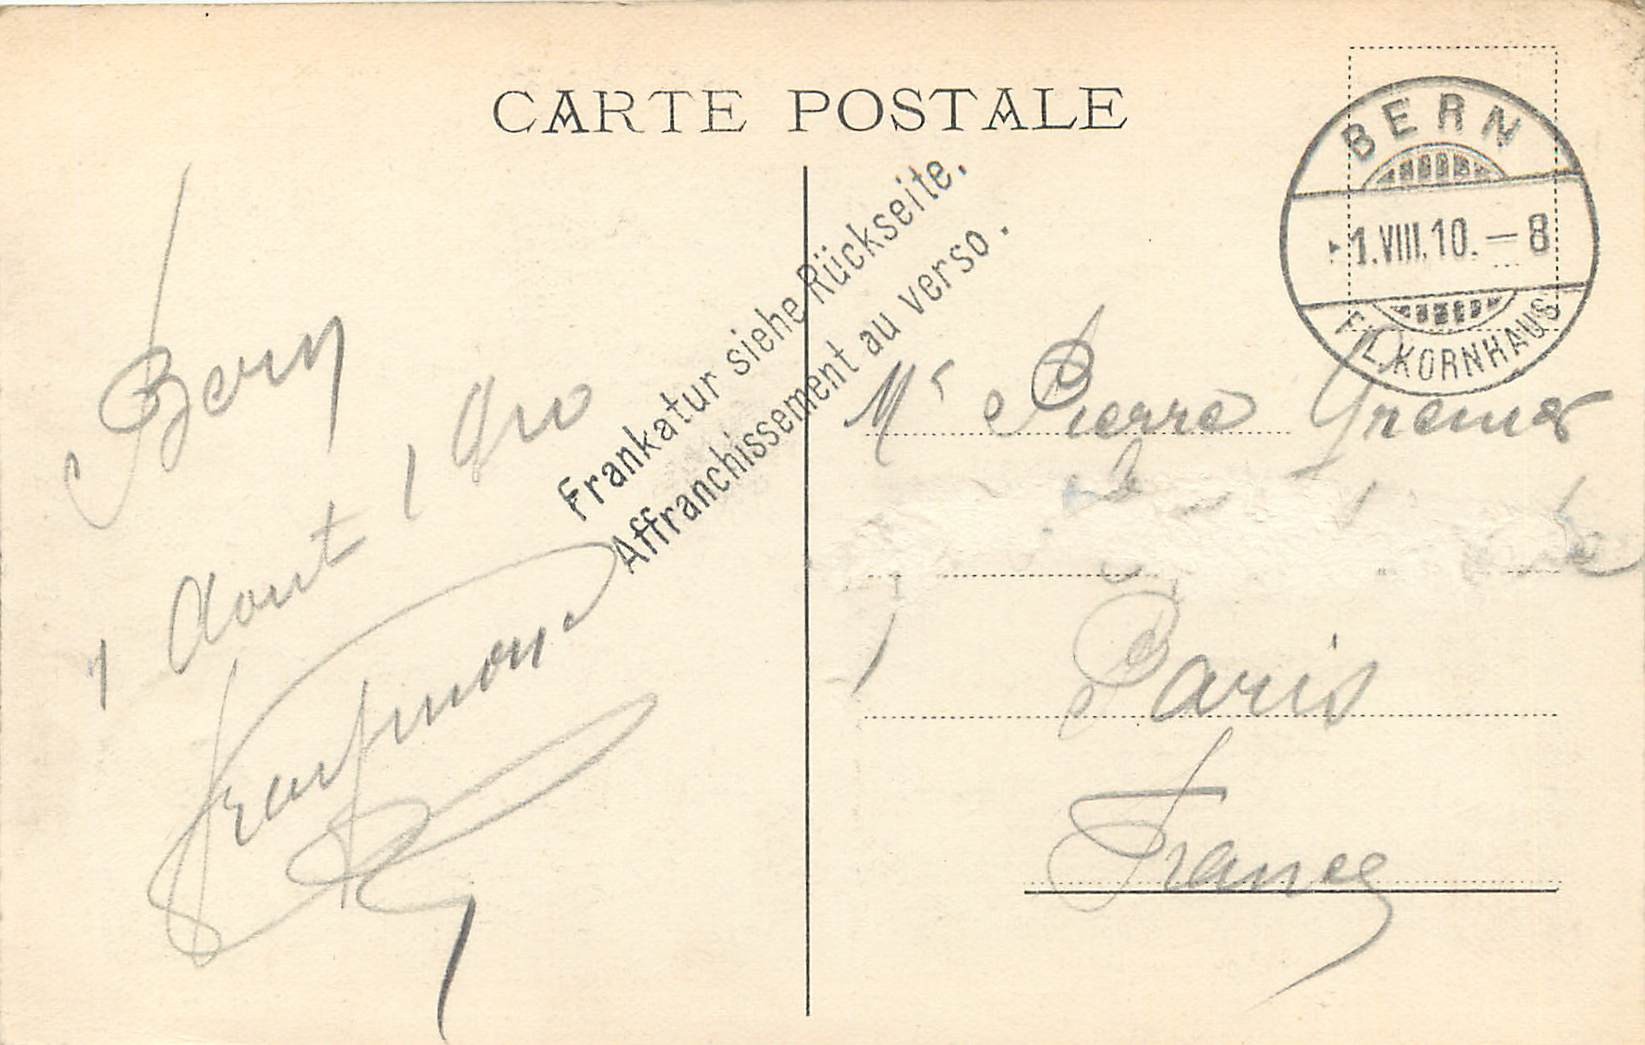 CARTE POSTALE
BERN
1.VIII.10.—8
FIL.KORNHAUS
Frankatur siehe Rückseite.
Affranchissement au verso.
Bern
1 Aout 1910
Mr Pierre
Paris
France